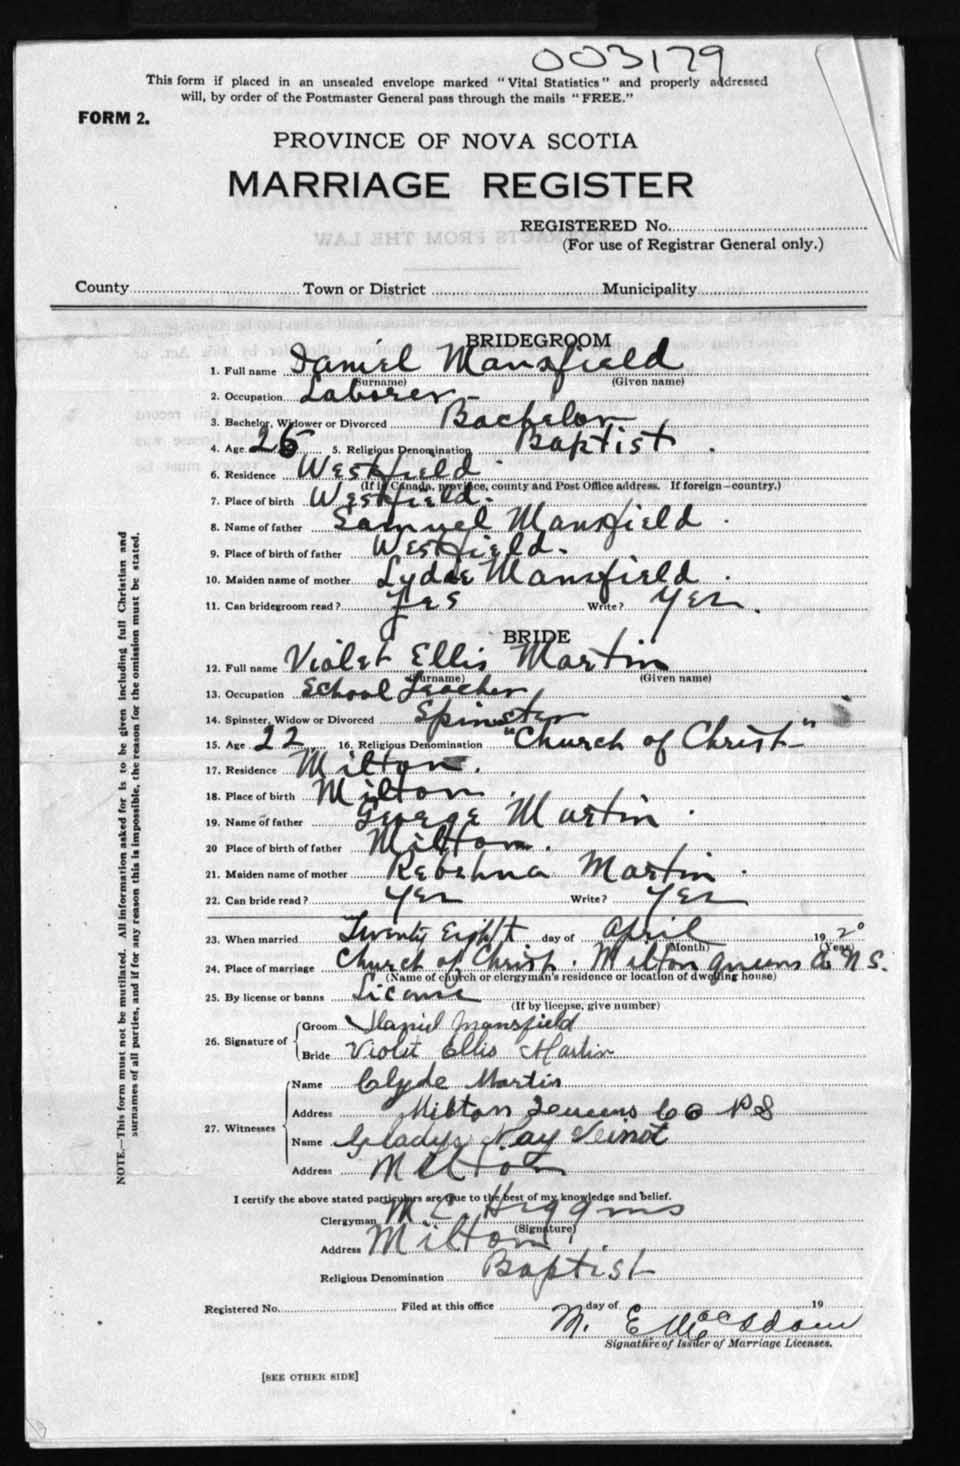 003179
This form if placed in an unsealed envelope marked "Vital Statistics" and properly addressed
will, by order of the Postmaster General pass through the mails "FREE."
FORM 2.
PROVINCE OF NOVA SCOTIA
MARRIAGE REGISTER
REGISTERED No.
(For use of Registrar General only.)
County Town or District Municipality
BRIDEGROOM
1. Full name Daniel Mansfield
(Surname) (Given name)
2. Occupation Laborer
3. Bachelor, Widower or Divorced Bachelor
4. Age 25 5. Religious Denomination Baptist
6. Residence Westfield
(If in Canada, province, county and Post Office address. If foreign—country.)
7. Place of birth Westfield
8. Name of father Samuel Mansfield
9. Place of birth of father Westfield
10. Maiden name of mother Mansfield
11. Can bridegroom read? Yes Write? Yes
BRIDE
12. Full name Violet Ellis Martin
(Surname) (Given name)
13. Occupation School Teacher
14. Spinster, Widow or Divorced Spinster
15. Age 22 16. Religious Denomination "Church of Christ"
17. Residence Milton
18. Place of birth Milton
19. Name of father George Martin
20 Place of birth of father Milton
21. Maiden name of mother Martin
22. Can bride read? Yes Write? Yes
23. When married Twenty Eight day of April 1920
(Month) (Year)
24. Place of marriage Church of Christ. Milton Queens Co N S.
(Name of church or clergyman's residence or location of dwelling house)
25. By license or banns License
(If by license, give number)
26. Signature of Groom Daniel Mansfield
Bride Violet Ellis Martin
27. Witnesses Name Clyde Martin
Address Milton Queens Co N S
Name Gladys May Veinot
Address Milton
I certify the above stated particulars are true to the best of my knowledge and belief.
Clergyman M C Higgins
(Signature)
Address Milton
Religious Denomination Baptist
Registered No. Filed at this office day of 19
M. E McAdam
Signature of Issuer of Marriage Licenses.
[SEE OTHER SIDE]
NOTE.—This form must not be mutilated. All information asked for is to be given including full Christian and
surnames of all parties, and if for any reason this is impossible, the reason for the omission must be stated.